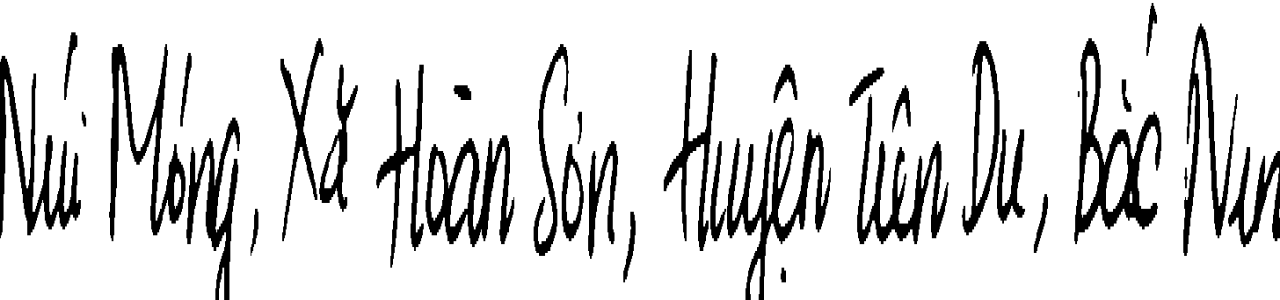 Núi Móng, Xã Hoàn Sơn, Huyện Tiên Du, Bắc Nin